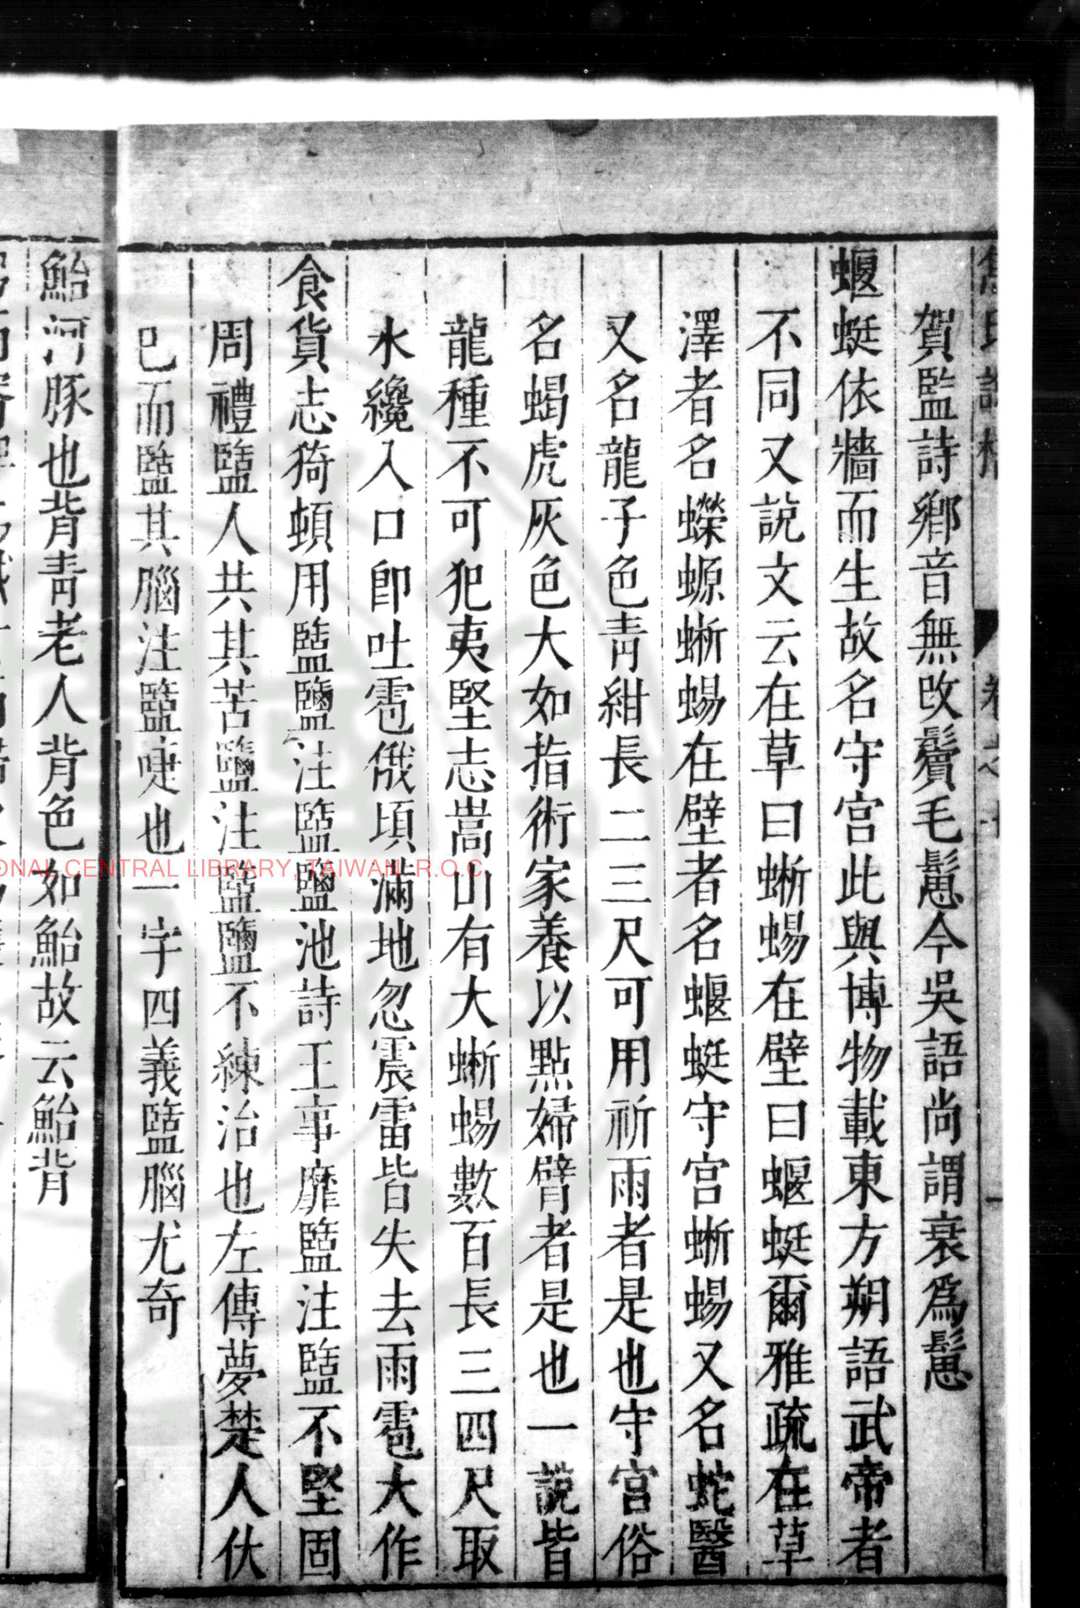 賀監詩鄉音無改鬢毛鬆今吳語尚謂衰爲鬆
蝘蜓依牆而生故名守宮此與博物載東方朔語武帝者
不同又說文云在草曰蜥蜴在壁曰蝘蜓爾雅疏在草
澤者名蠑螈蜥蜴在壁者名蝘蜓守宮蜥蜴又名蛇醫
又名龍子色靑紺長二三尺可用祈雨者是也守宮俗
名蝎虎灰色大如指術家養以點婦臂者是也一說皆
龍種不可犯夷堅志嵩山有大蜥蜴數百長三四尺取
水纔入口卽吐雹俄頃滿地忽震雷皆失去雨雹大作
食貨志猗頓用盬鹽注盬鹽池詩王事靡盬注盬不堅固
周禮盬人共其苦鹽注盬鹽不練治也左傳夢楚人伏
已而盬其腦注盬啑也一字四義盬腦尤奇
鮐河豚也背靑老人背色如鮐故云鮐背
NATIONAL CENTRAL LIBRARY, TAIWAN R.O.C.